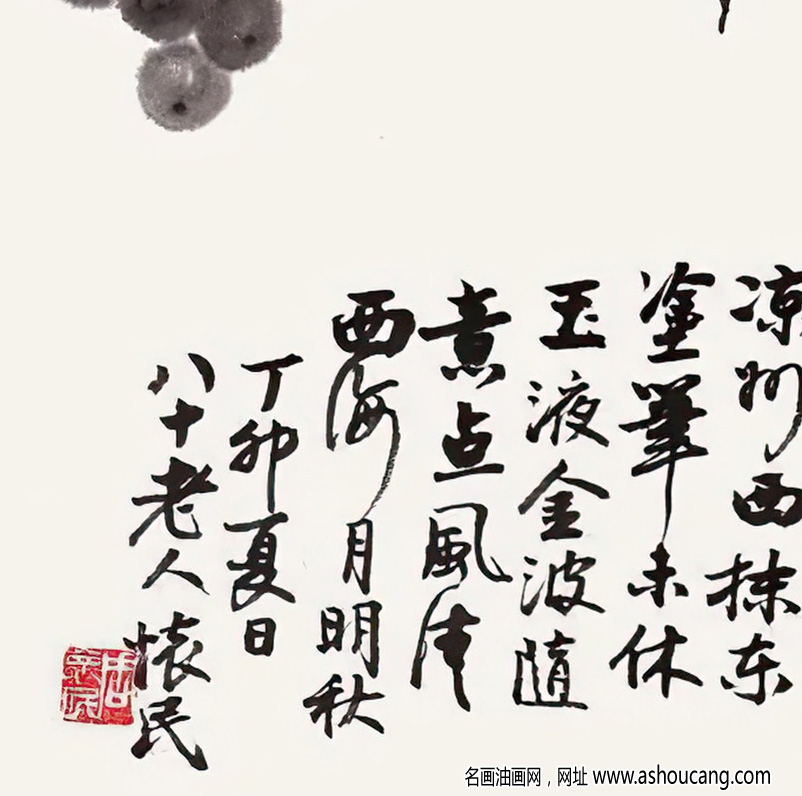 凉州西抹东
塗筆未休
玉液金波隨
煮点風清
西海月明秋
丁卯夏日
八十老人懷民
名画油画网，网址 www.ashoucang.com